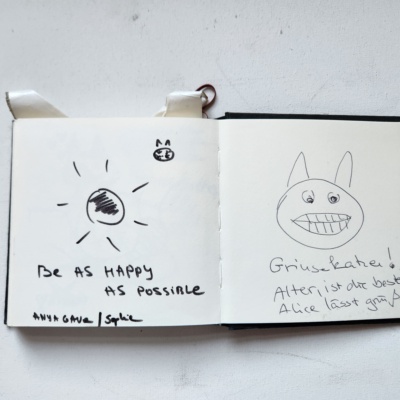 BE AS HAPPY
AS POSSIBLE
ANYA GAVE / Sophie
Grinsekatze!
Alter, ist die beste
Alice lässt grüß